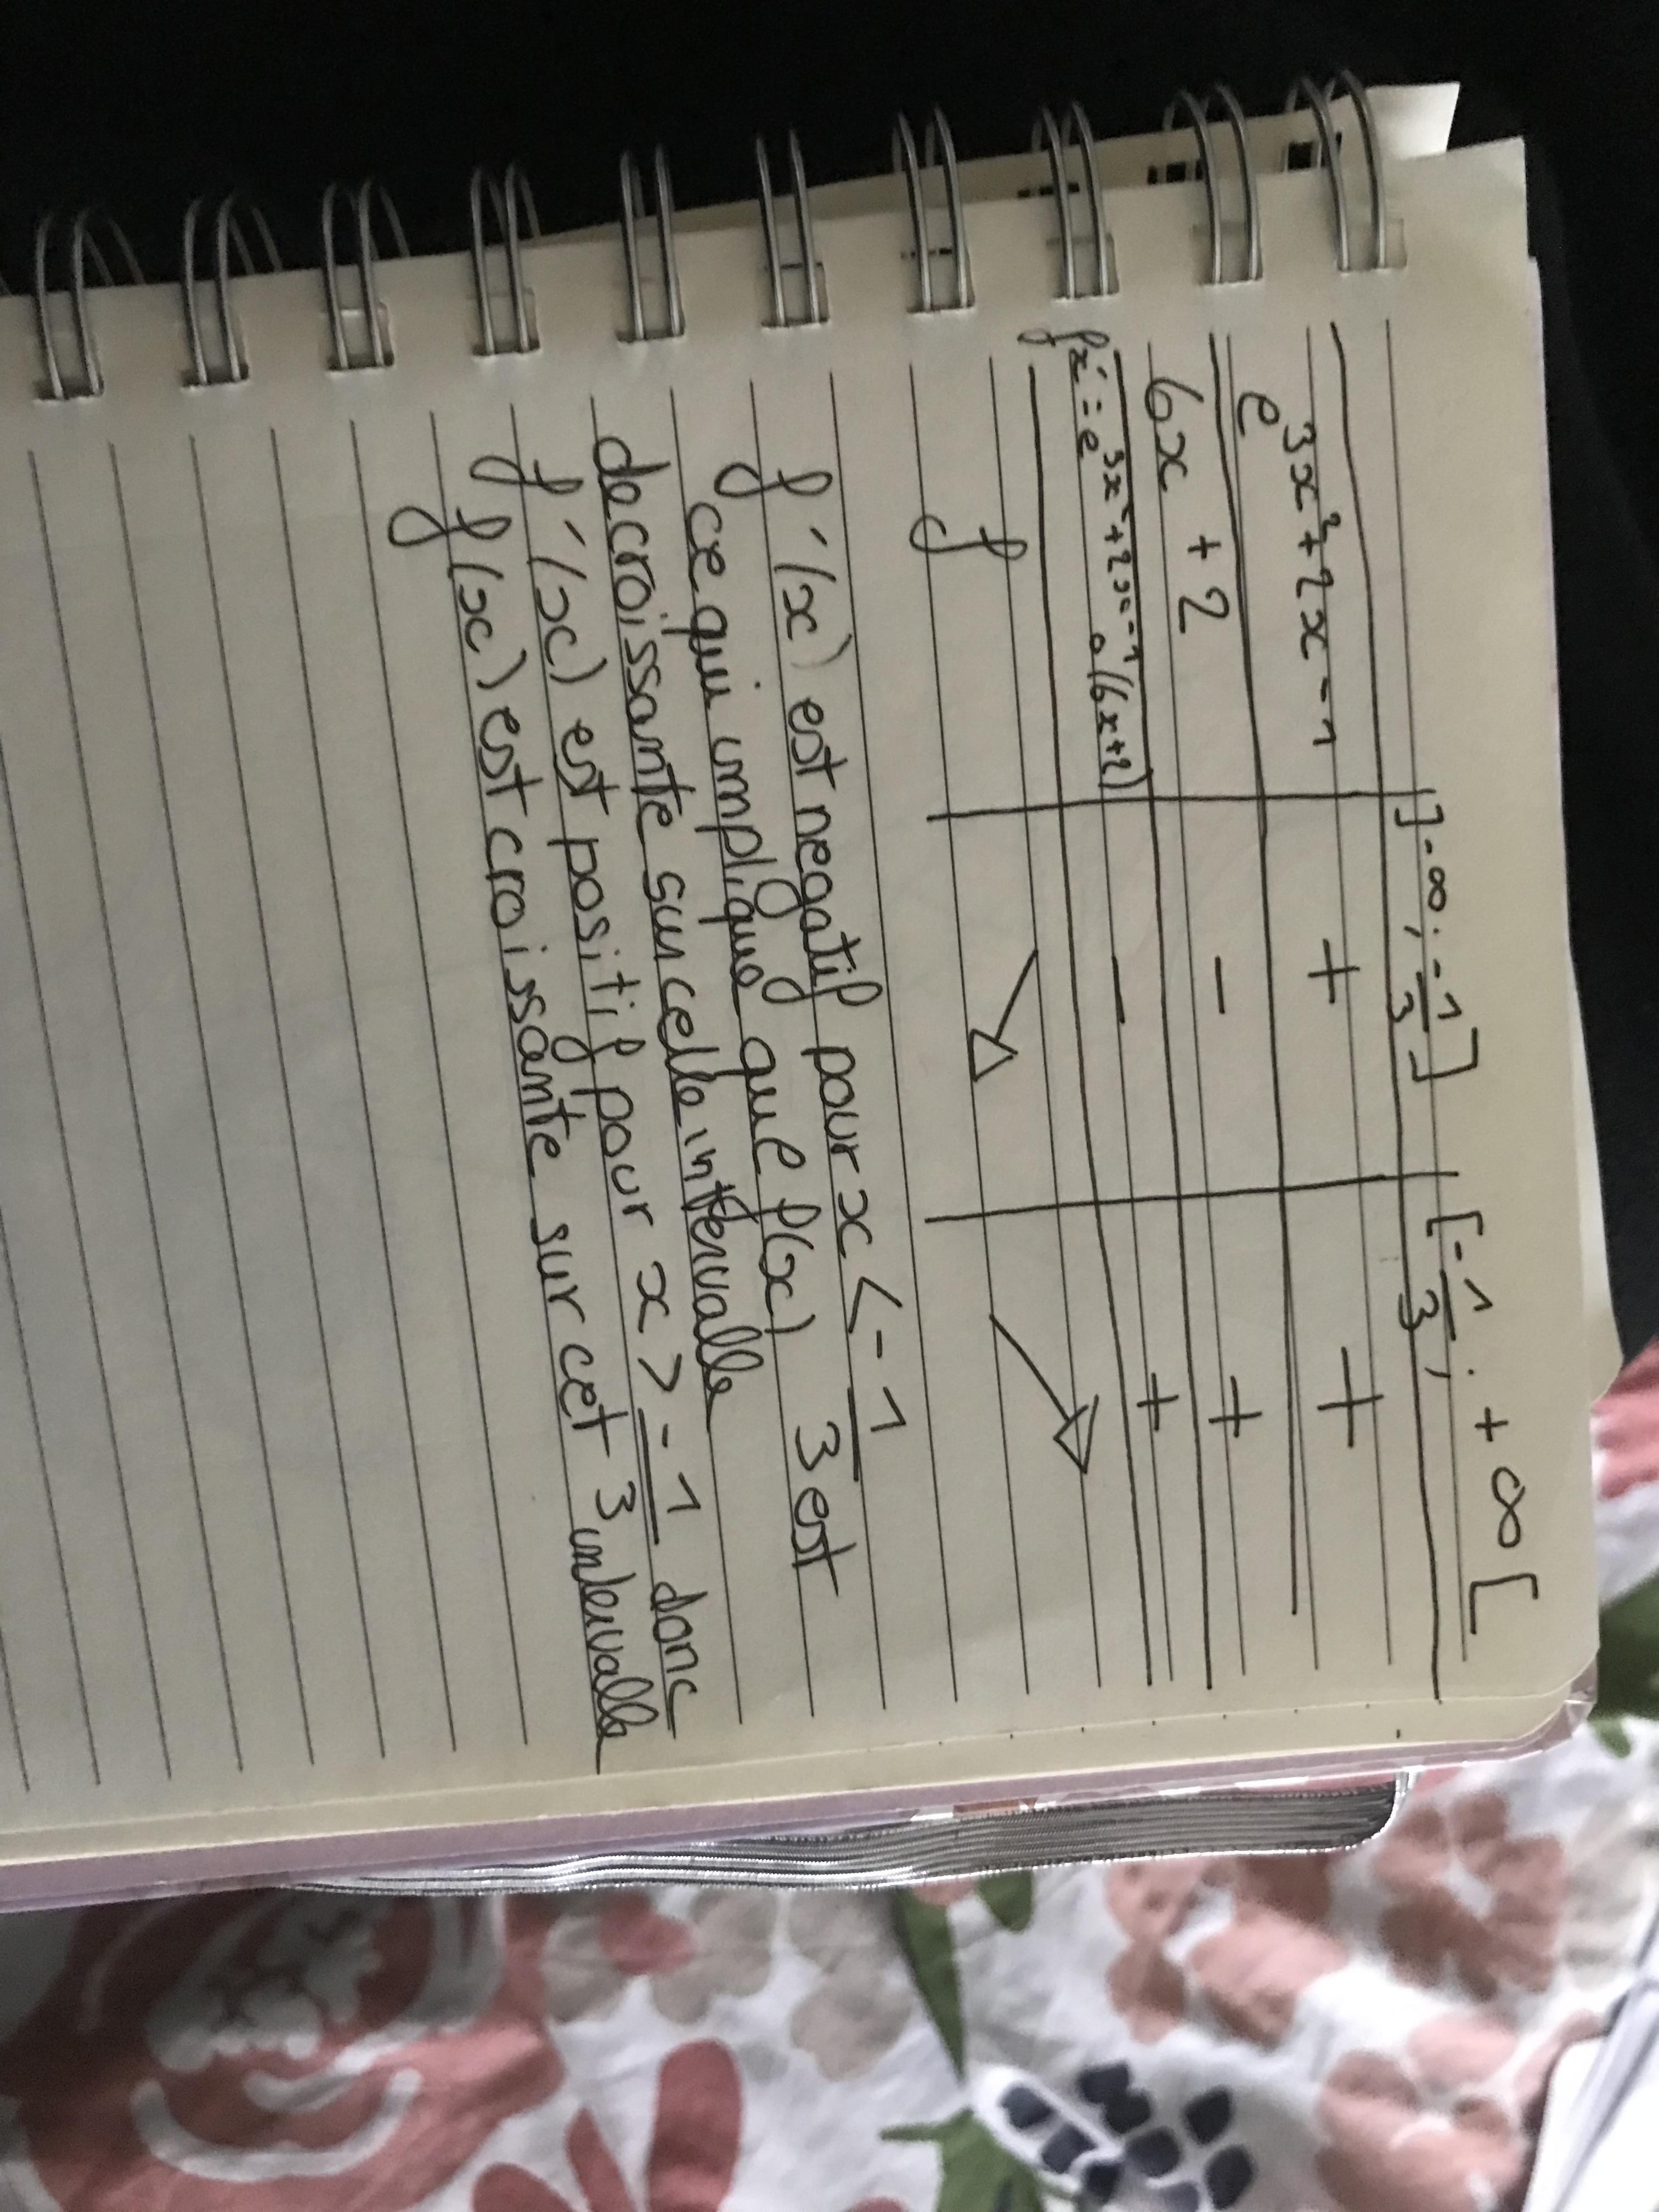 ]-∞; -1/3] [-1/3; +∞[
e^3x²+2x-1 + +
6x + 2 - +
fx' = e^3x²+2x-1 × (6x+2) - +
f ↘ ↗
f'(x) est negatif pour x < -1/3 est
ce qui implique que f(x) est
decroissante sur celle intervalle
f'(x) est positif pour x > -1/3 donc
f(x) est croissante sur cet intervalle